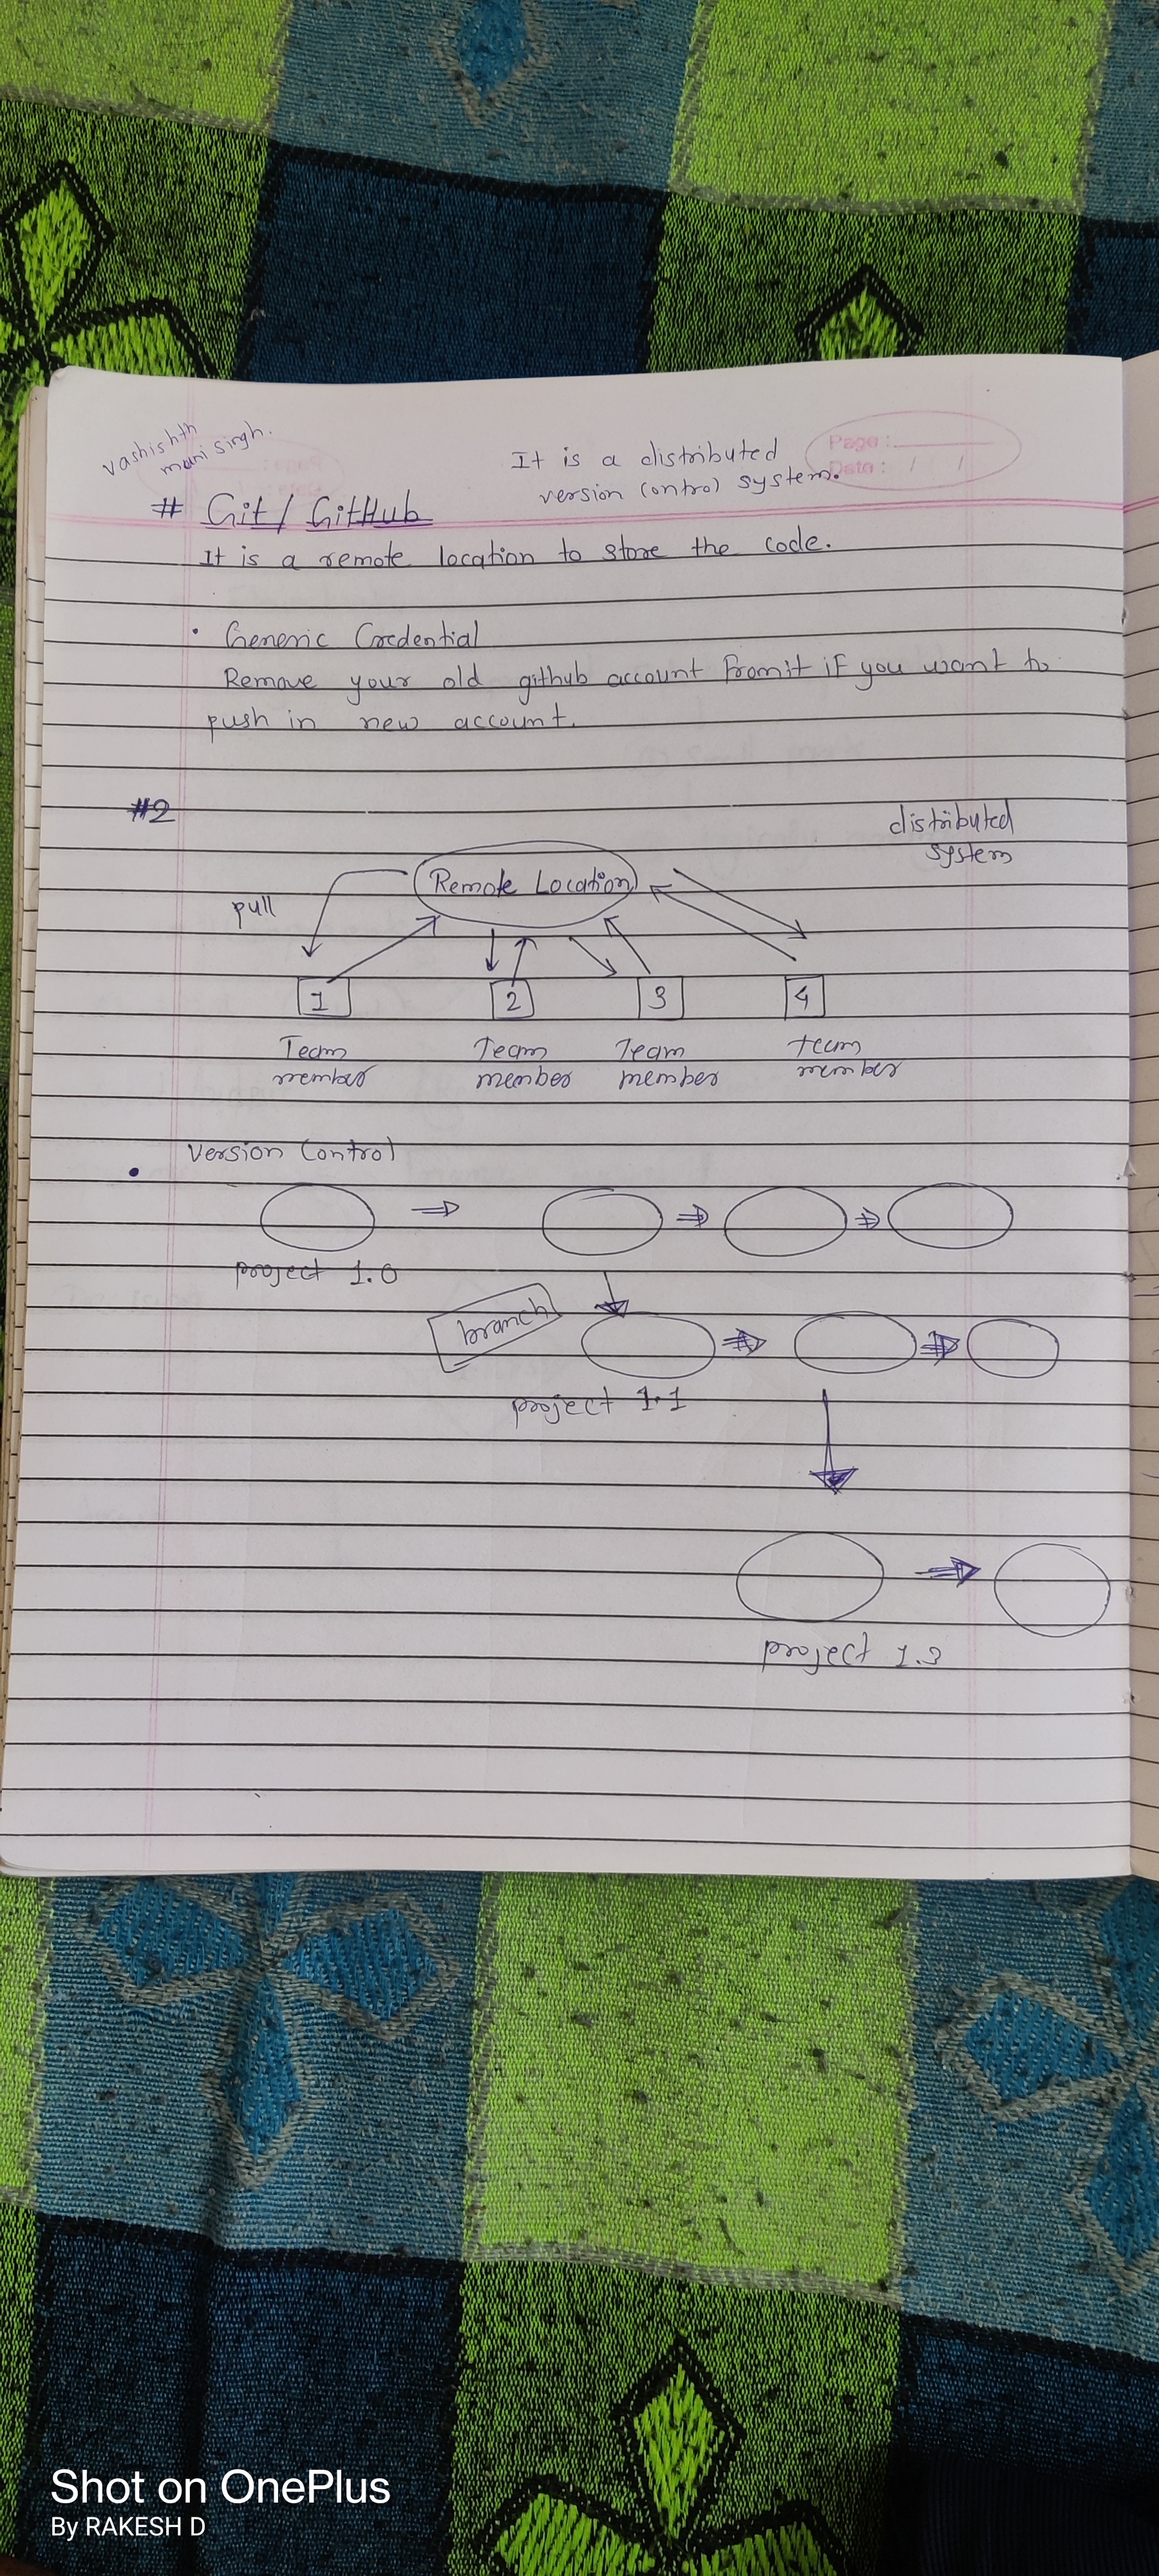 vashishth
mani singh.
It is a distributed
version control system.
Page :
Date : / /
# Git / GitHub
It is a remote location to store the code.
• Generic Credential
Remove your old github account from it if you want to
push in new account.
#2
distributed
system
Remote Location
pull
1 2 3 4
Team Team Team team
member member member member
• Version Control
project 1.0
branch
project 1.1
project 1.3
Shot on OnePlus
By RAKESH D